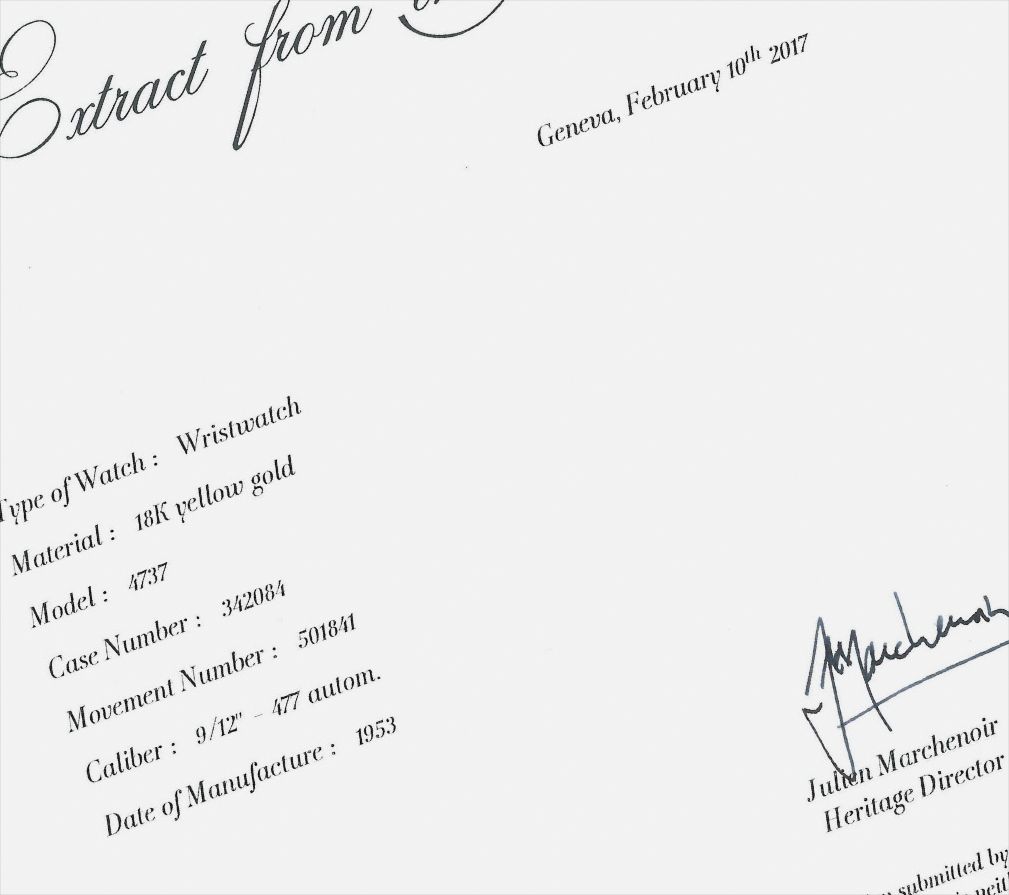 Extract from
Geneva, February 10th 2017
Type of Watch : Wristwatch
Material : 18K yellow gold
Model : 4737
Case Number : 342084
Movement Number : 501841
Caliber : 9/12" - 477 autom.
Date of Manufacture : 1953
JMarchenoir
Julien Marchenoir
Heritage Director
submitted by